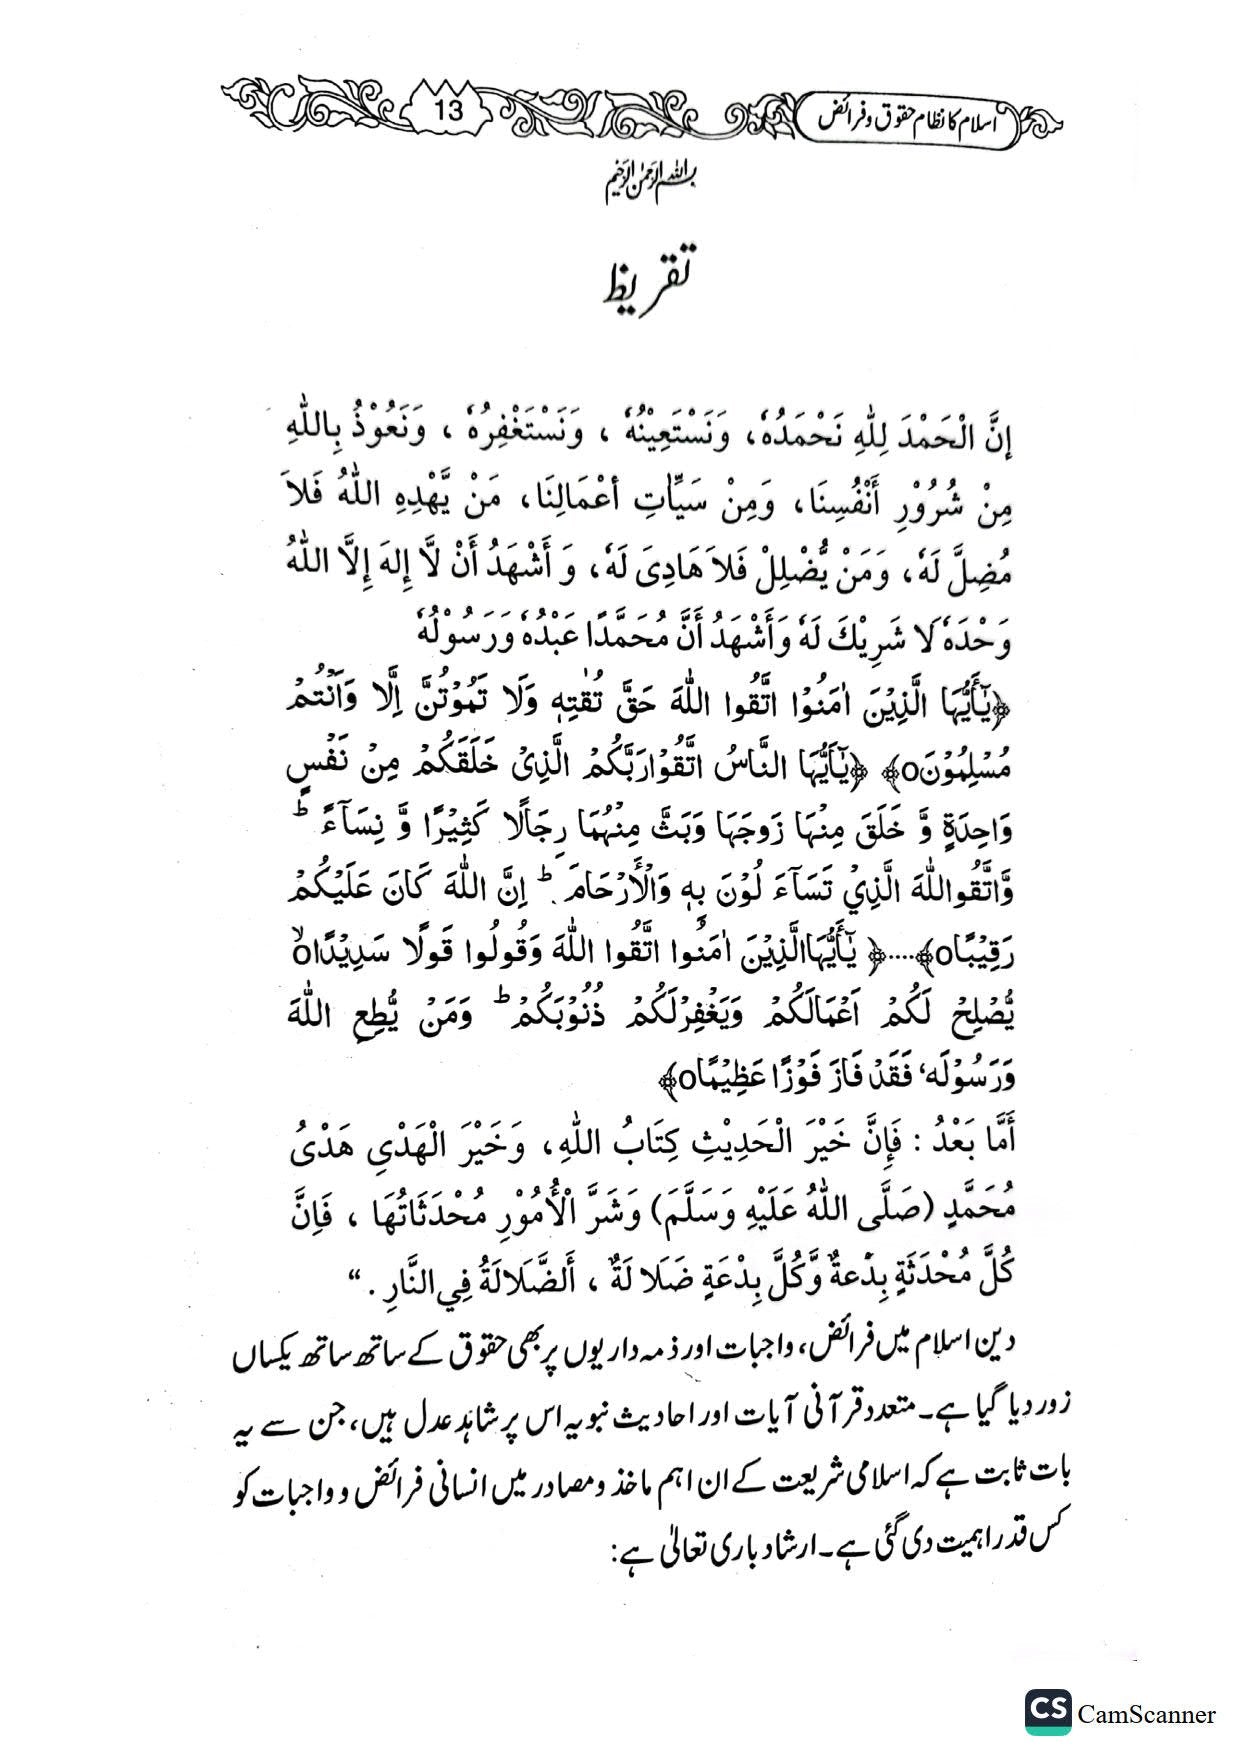 اسلام کا نظام حقوق و فرائض
13
بسم اللہ الرحمن الرحیم
تقریظ
إِنَّ الْحَمْدَ لِلّٰهِ نَحْمَدُهٗ، وَنَسْتَعِيْنُهٗ ، وَنَسْتَغْفِرُهٗ ، وَنَعُوْذُ بِاللّٰهِ
مِنْ شُرُوْرِ أَنْفُسِنَا، وَمِنْ سَيِّاٰتِ أَعْمَالِنَا، مَنْ يَّهْدِهِ اللّٰهُ فَلاَ
مُضِلَّ لَهٗ، وَمَنْ يُّضْلِلْ فَلاَ هَادِىَ لَهٗ، وَ أَشْهَدُ أَنْ لَّا إِلهَ إِلَّا اللّٰهُ
وَحْدَهٗ لَا شَرِيْكَ لَهٗ وَأَشْهَدُ أَنَّ مُحَمَّدًا عَبْدُهٗ وَرَسُوْلُهٗ
﴿يٰٓأَيُّهَا الَّذِيْنَ اٰمَنُوْا اتَّقُوا اللّٰهَ حَقَّ تُقٰتِهٖ وَلَا تَمُوْتُنَّ اِلَّا وَاَنْتُمْ
مُسْلِمُوْنَo﴾ ﴿يٰٓأَيُّهَا النَّاسُ اتَّقُوْا رَبَّكُمْ الَّذِىْ خَلَقَكُمْ مِنْ نَفْسٍ
وَاحِدَةٍ وَّ خَلَقَ مِنْهَا زَوْجَهَا وَبَثَّ مِنْهُمَا رِجَالًا كَثِيْرًا وَّ نِسَآءً ؕ
وَّاتَّقُوا اللّٰهَ الَّذِيْ تَسَآءَ لُوْنَ بِهٖ وَالْأَرْحَامَ ؕ اِنَّ اللّٰهَ كَانَ عَلَيْكُمْ
رَقِيْبًاo﴾....﴿ يٰٓأَيُّهَا الَّذِيْنَ اٰمَنُوا اتَّقُوا اللّٰهَ وَقُولُوا قَولًا سَدِيْدًاo
يُّصْلِحْ لَكُمْ اَعْمَالَكُمْ وَيَغْفِرْ لَكُمْ ذُنُوْبَكُمْ ؕ وَمَنْ يُّطِعِ اللّٰهَ
وَرَسُوْلَه، فَقَدْ فَازَ فَوْزًا عَظِيْمًاo﴾
أَمَّا بَعْدُ : فَإِنَّ خَيْرَ الْحَدِيْثِ كِتَابُ اللّٰهِ، وَخَيْرَ الْهَدْىِ هَدْىُ
مُحَمَّدٍ (صَلَّى اللّٰهُ عَلَيْهِ وَسَلَّمَ) وَشَرَّ الْأُمُوْرِ مُحْدَثَاتُهَا ، فَإِنَّ
كُلَّ مُحْدَثَةٍ بِدْعَةٌ وَّكُلَّ بِدْعَةٍ ضَلَا لَةٌ ، أَلضَّلَالَةُ فِي النَّارِ . “
دین اسلام میں فرائض، واجبات اور ذمہ داریوں پر بھی حقوق کے ساتھ ساتھ یکساں
زور دیا گیا ہے۔ متعدد قرآنی آیات اور احادیث نبویہ اس پر شاہد عدل ہیں، جن سے یہ
بات ثابت ہے کہ اسلامی شریعت کے ان اہم ماخذ و مصادر میں انسانی فرائض و واجبات کو
کس قدر اہمیت دی گئی ہے۔ ارشاد باری تعالیٰ ہے:
CS CamScanner